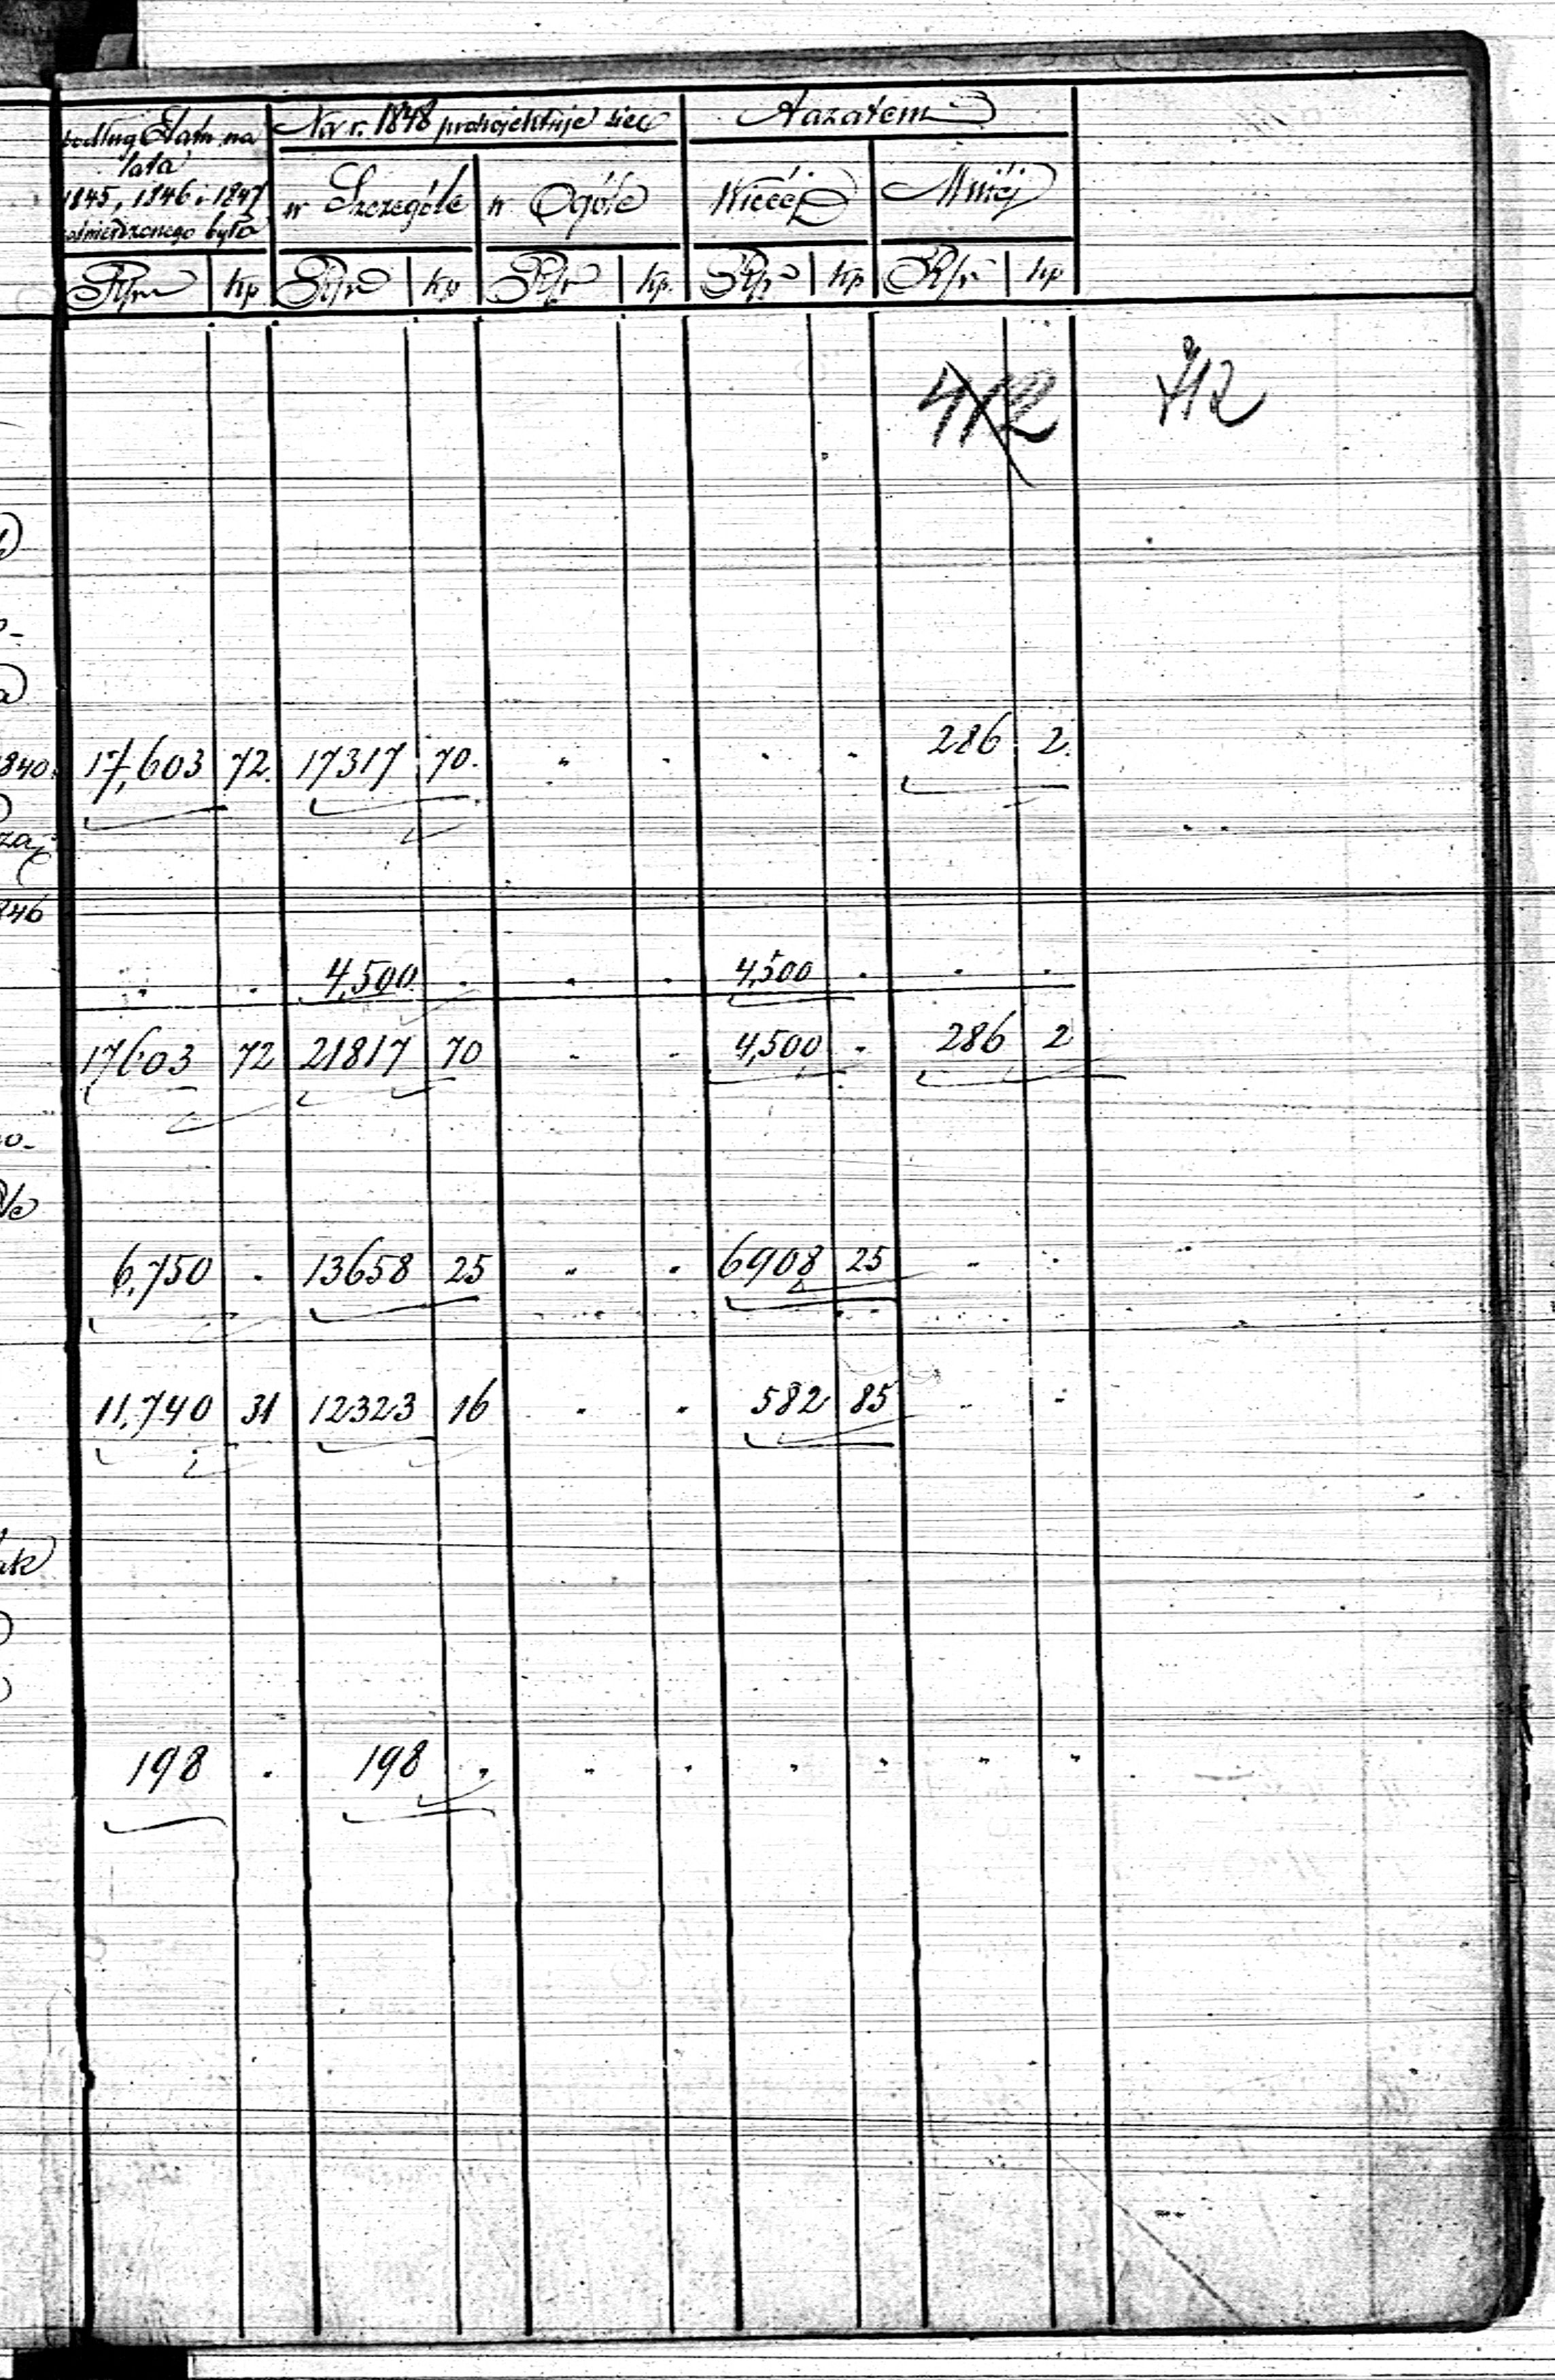 podług Etatu na Na r. 1848 projektuje się A azatem
lata
1845, 1846 i 1847 w Szczególe w Ogóle Więcéj Mniéj
zatwierdzonego było
Rsr kp Rsr kp Rsr kp. Rsr kp Rsr kp
412 412
840. 17,603 72. 17317 70. " . . . 286 2.
846
. . 4,500. . . . 4,500 . . .
17603 72 21817 70 . . 4,500 . 286 2
6,750 . 13658 25 " . 6908 25 " .
11,740 31 12323 16 . . 582 85 " .
198 . 198 " " " " " " "